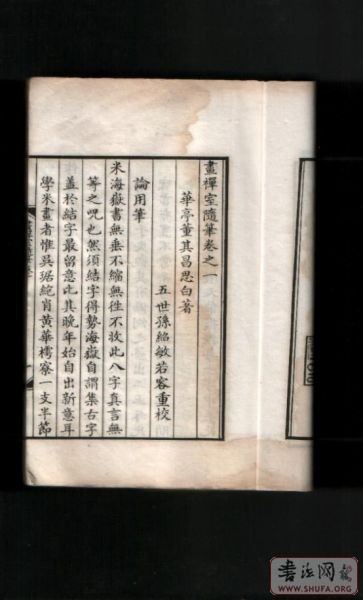 畫禪室隨筆卷之一
華亭董其昌思白著
五世孫紹敏若容重校
論用筆
米海嶽書無垂不縮無往不收此八字真言無
等等之咒也然須結字得勢海嶽自謂集古字
蓋於結字最留意比其晚年始自出新意耳
學米書者惟吳琚絕肖黃華樗寮一支半節
書法网
WWW.SHUFA.ORG